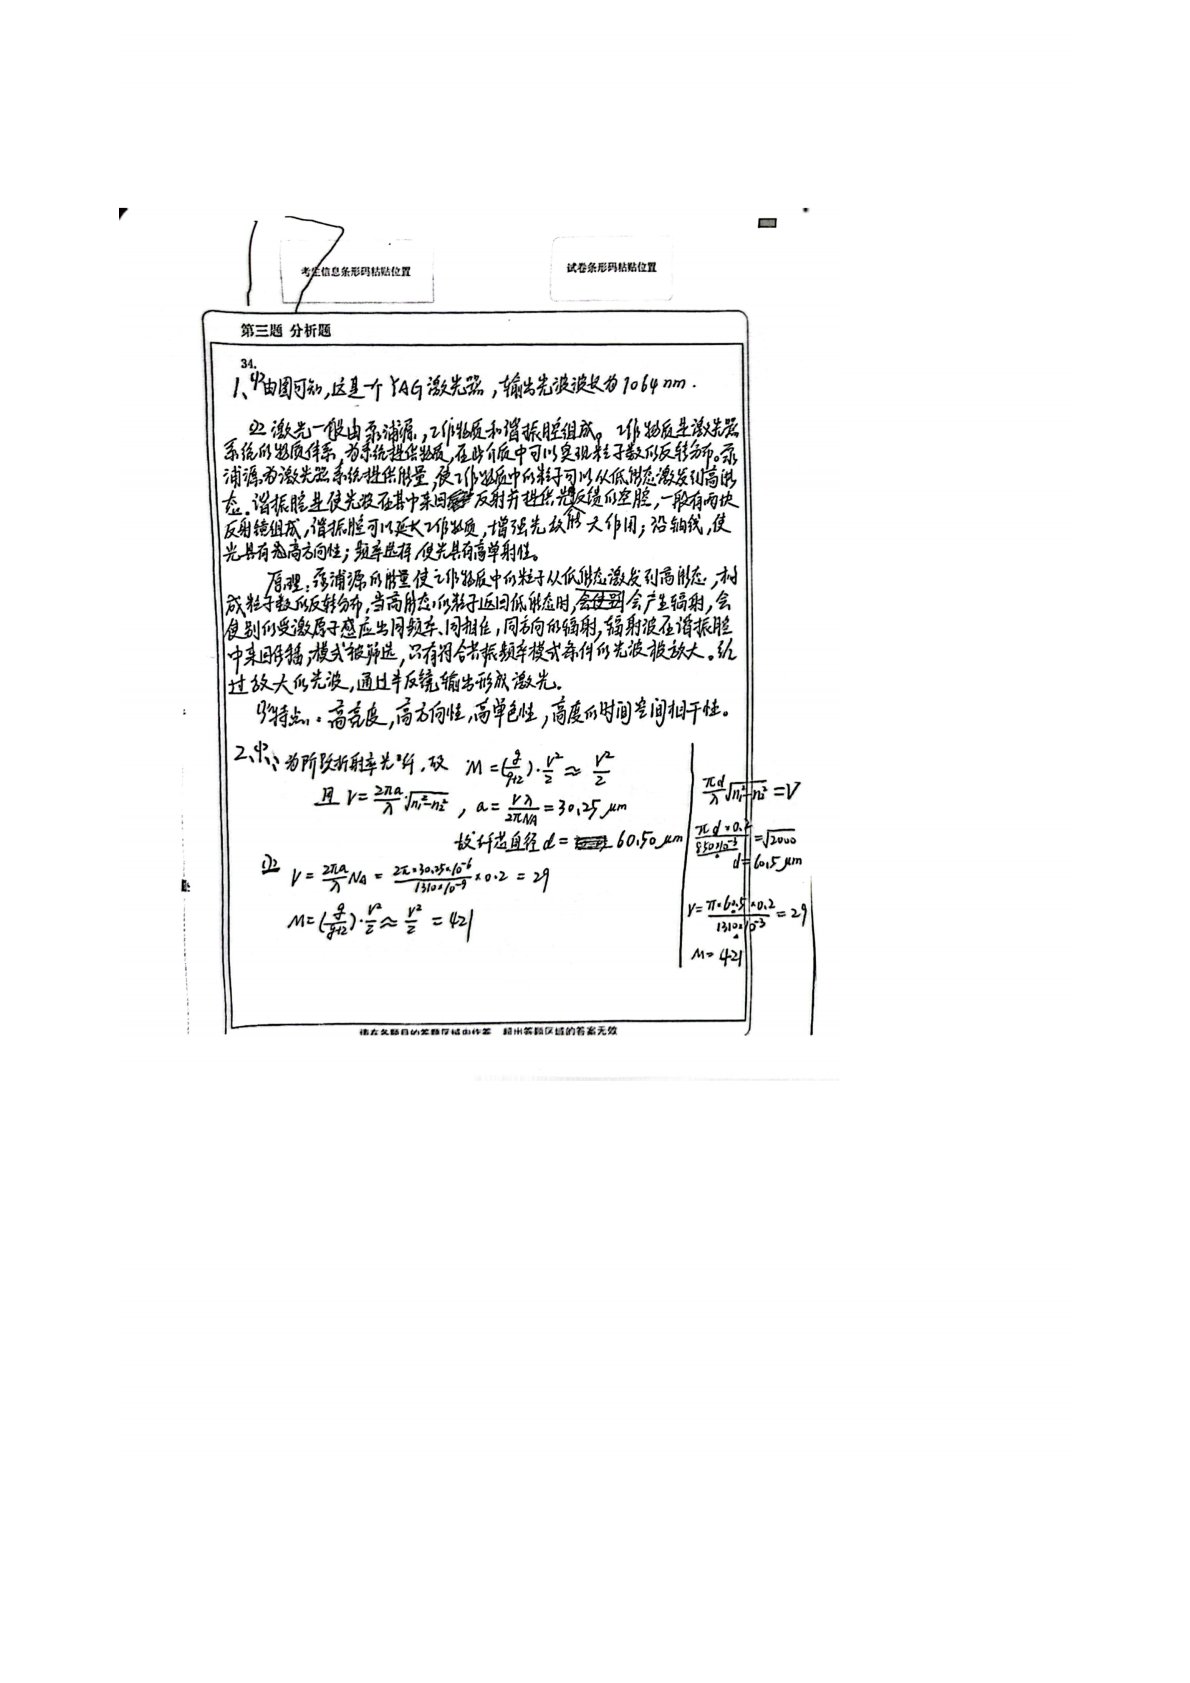 考生信息条形码粘贴位置
试卷条形码粘贴位置
第三题 分析题
34.
1、(1)由图可知,这是一个YAG激光器,输出光波波长为1064nm.
(2) 激光一般由泵浦源,工作物质和谐振腔组成。工作物质是激光器
系统的物质体系,为系统提供物质,在此介质中可以实现粒子数的反转分布。泵
浦源为激光器系统提供能量,使工作物质中的粒子可以从低能态激发到高能
态。谐振腔是使光波在其中来回反射并提供光能反馈的空腔,一般有两块
反射镜组成,谐振腔可以延长工作物质,增强光放大作用;沿轴线,使
光具有高方向性;频率选择,使光具有高单射性。
原理:泵浦源的能量使工作物质中的粒子从低能态激发到高能态,构
成粒子数的反转分布,当高能态的粒子返回低能态时,会产生辐射,会
使别的受激原子感应出同频率、同相位,同方向的辐射,辐射波在谐振腔
中来回传播,模式被筛选,只有符合共振频率模式条件的光波被放大。经
过放大的光波,通过半反镜输出形成激光。
(3)特点:高亮度,高方向性,高单色性,高度的时间空间相干性。
2、(1)、为阶跃折射率光纤,故 M=(g/(g+2))·V²/2≈V²/2
且 V=2πa/λ·√(n₁²-n₂²) , a=Vλ/2πNA=30.25μm
故纤芯直径d= 60.50μm
(2) V=2πa/λ NA=2π×30.25×10⁻⁶/1310×10⁻⁹×0.2=29
M=(g/(g+2))·V²/2≈V²/2=421
πd/λ√(n₁²-n₂²)=V
πd×0.2/850×10⁻³=√2000
d=60.5μm
V=π×60.5×0.2/1310×10⁻³=29
M=421
请在各题目的答题区域内作答,超出答题区域的答案无效